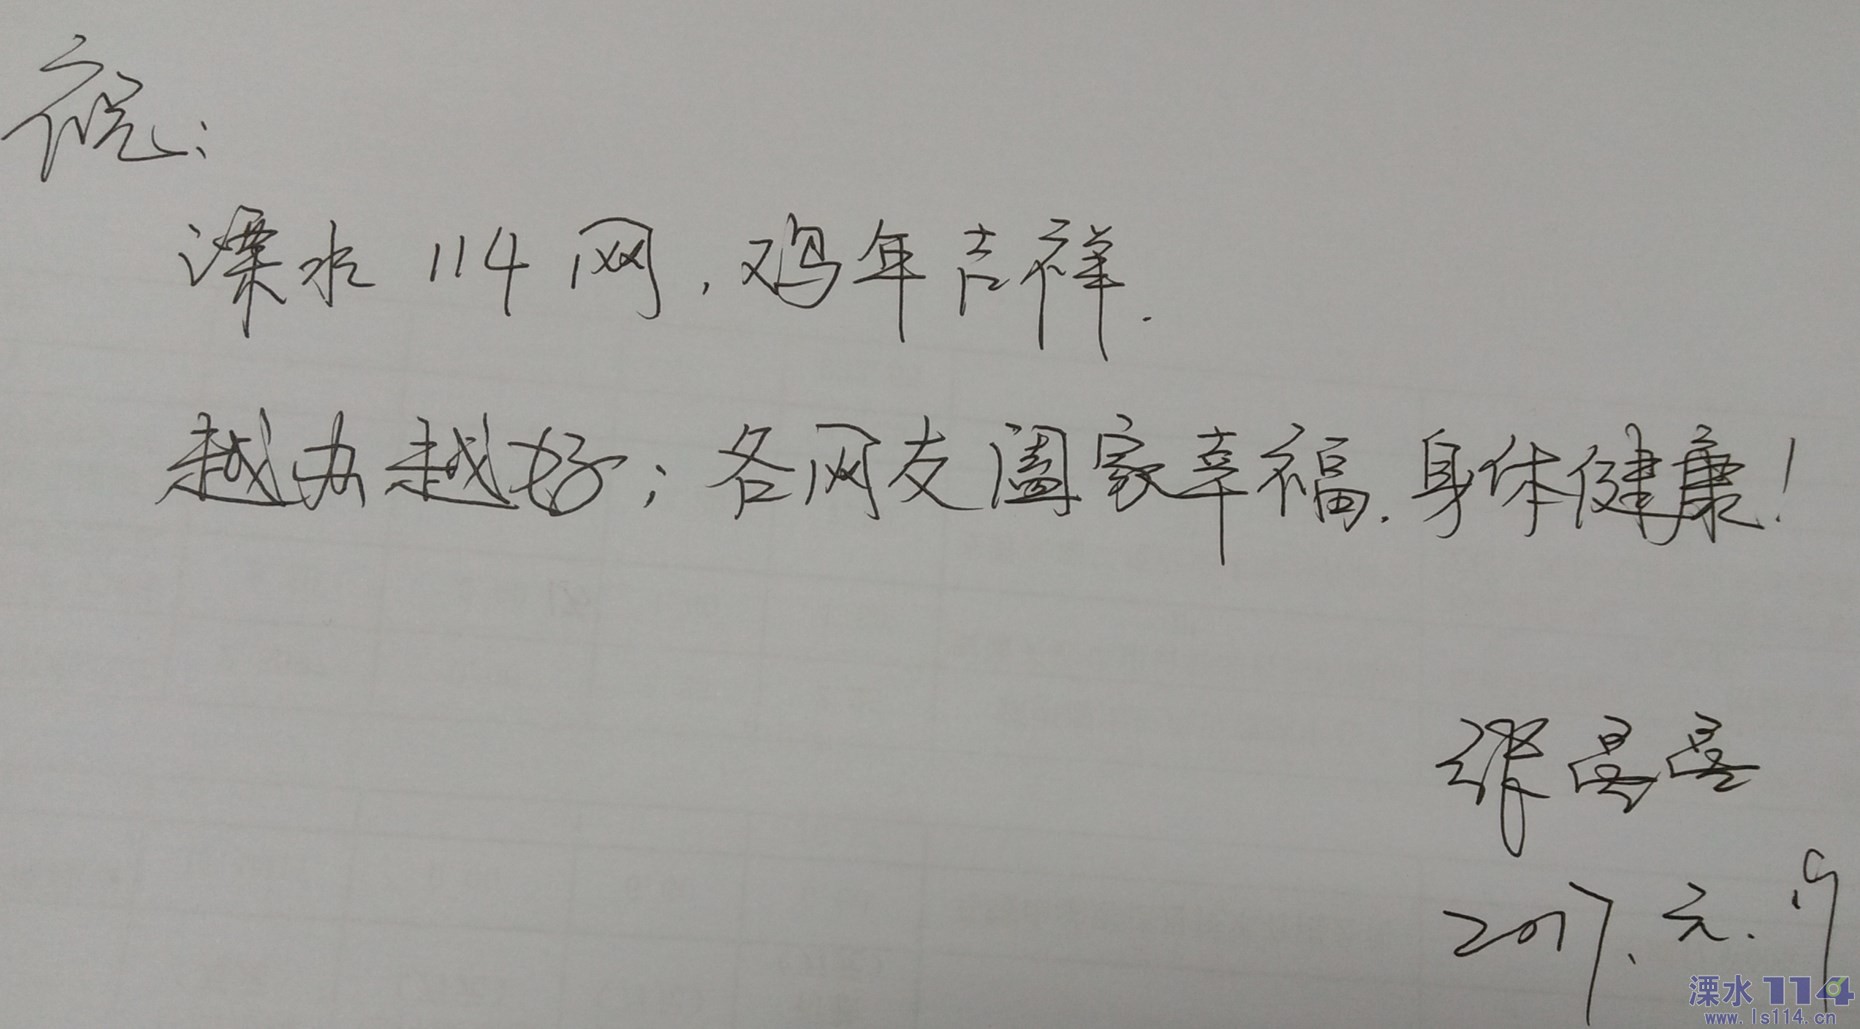 祝:
溧水114网,鸡年吉祥.
越办越好;各网友阖家幸福.身体健康!
2017.元.19
溧水114
www.ls114.cn